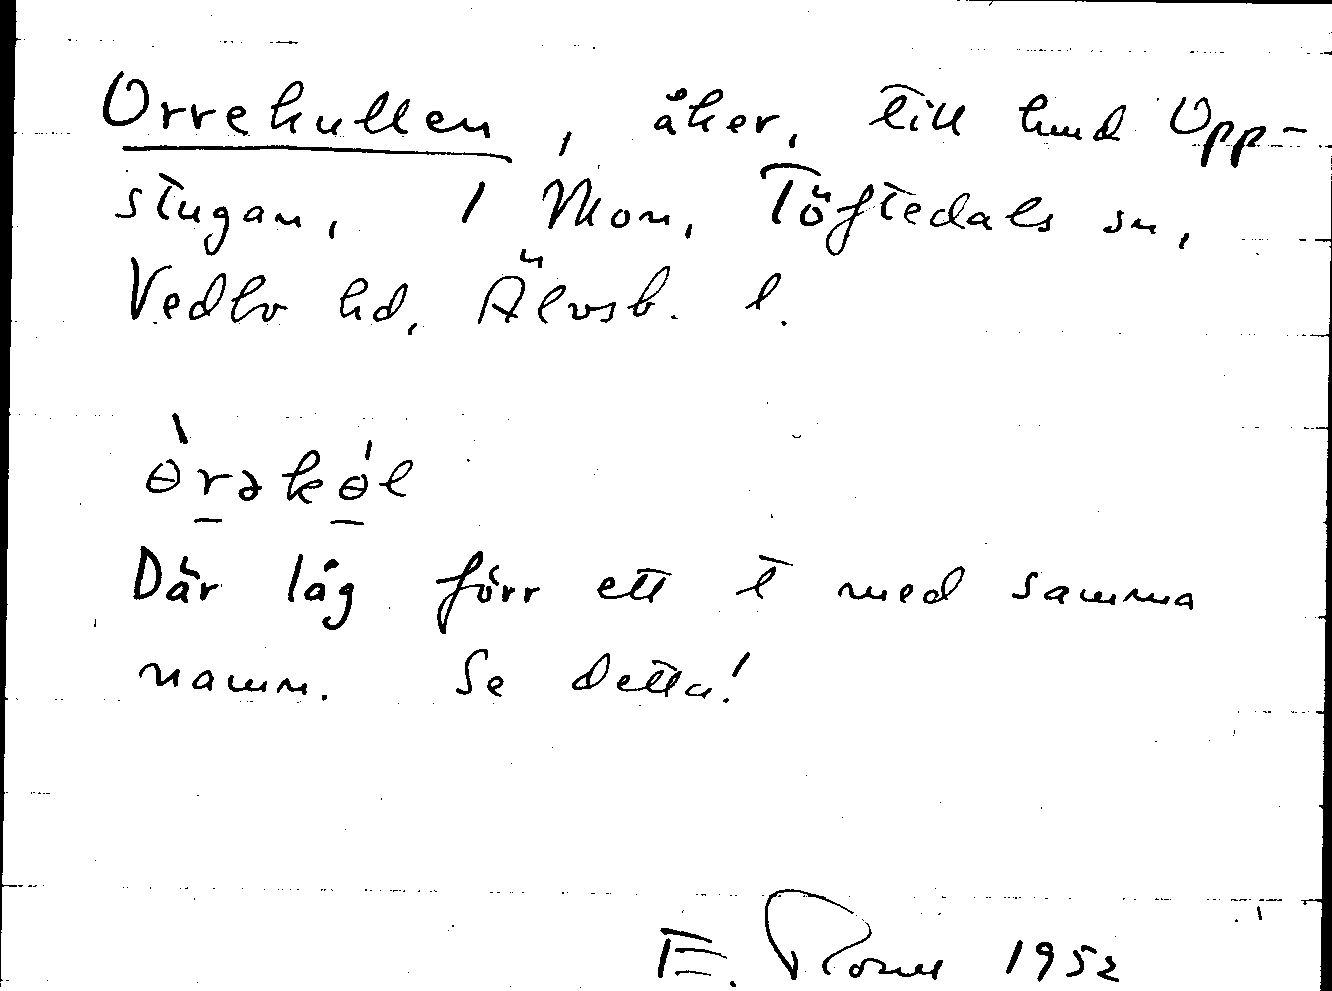 Orrekullen, åker, till hmd Upp-
stugan, 1 Mon, Töftedals sn,
Vedbo hd, Älvsb. l.
ɵ̀rəkɵ́l
Där låg förr ett t med samma
namn. Se detta!
E. 1952